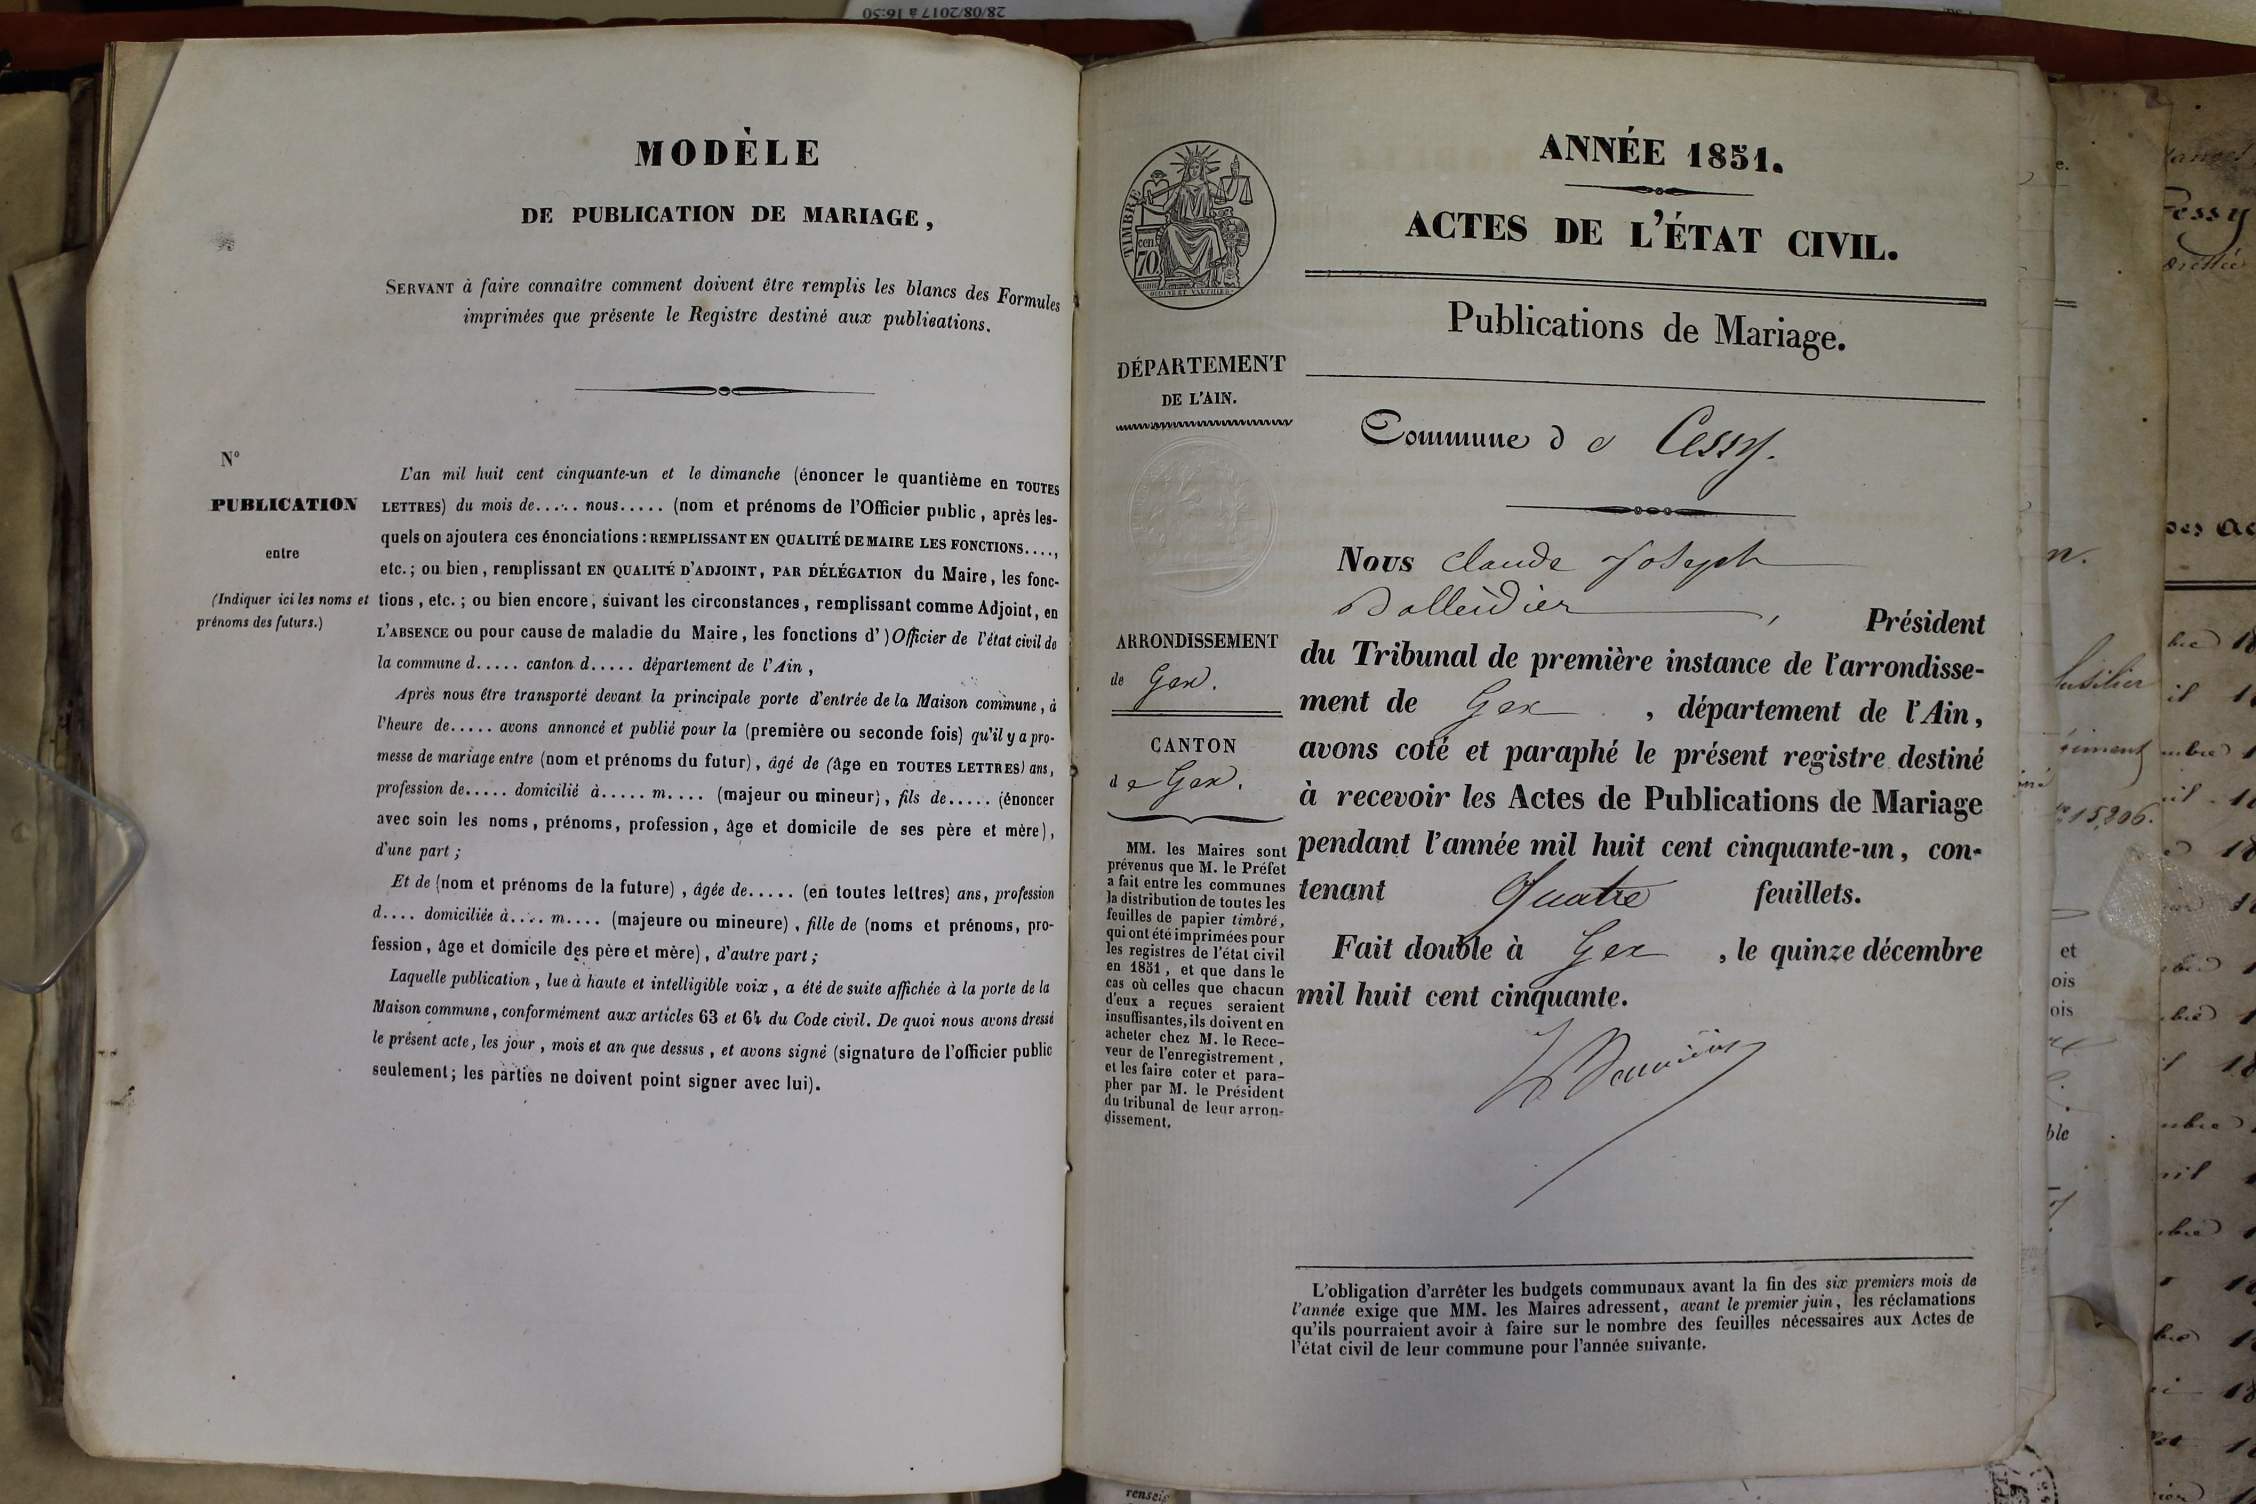 28/08/2017 à 16:50
MODÈLE
DE PUBLICATION DE MARIAGE,
SERVANT à faire connaître comment doivent être remplis les blancs des Formules
imprimées que présente le Registre destiné aux publications.
N°
PUBLICATION
entre
(Indiquer ici les noms et
prénoms des futurs.)
L'an mil huit cent cinquante-un et le dimanche (énoncer le quantième en TOUTES
LETTRES) du mois de..... nous..... (nom et prénoms de l'Officier public, après les-
quels on ajoutera ces énonciations : REMPLISSANT EN QUALITÉ DE MAIRE LES FONCTIONS....,
etc. ; ou bien, remplissant EN QUALITÉ D'ADJOINT, PAR DÉLÉGATION du Maire, les fonc-
tions, etc. ; ou bien encore, suivant les circonstances, remplissant comme Adjoint, en
L'ABSENCE ou pour cause de maladie du Maire, les fonctions d') Officier de l'état civil de
la commune d..... canton d..... département de l'Ain,
Après nous être transporté devant la principale porte d'entrée de la Maison commune, à
l'heure de..... avons annoncé et publié pour la (première ou seconde fois) qu'il y a pro-
messe de mariage entre (nom et prénoms du futur), âgé de (âge en TOUTES LETTRES) ans,
profession de..... domicilié à..... m.... (majeur ou mineur), fils de..... (énoncer
avec soin les noms, prénoms, profession, âge et domicile de ses père et mère),
d'une part ;
Et de (nom et prénoms de la future), âgée de..... (en toutes lettres) ans, profession
d.... domiciliée à.... m.... (majeure ou mineure), fille de (noms et prénoms, pro-
fession, âge et domicile des père et mère), d'autre part ;
Laquelle publication, lue à haute et intelligible voix, a été de suite affichée à la porte de la
Maison commune, conformément aux articles 63 et 64 du Code civil. De quoi nous avons dressé
le présent acte, les jour, mois et an que dessus, et avons signé (signature de l'officier public
seulement ; les parties ne doivent point signer avec lui).
TIMBRE
cen.
70
ANNÉE 1851.
ACTES DE L'ÉTAT CIVIL.
Publications de Mariage.
DÉPARTEMENT
DE L'AIN.
ARRONDISSEMENT
de Gex.
CANTON
de Gex.
MM. les Maires sont
prévenus que M. le Préfet
a fait entre les communes
la distribution de toutes les
feuilles de papier timbré,
qui ont été imprimées pour
les registres de l'état civil
en 1851, et que dans le
cas où celles que chacun
d'eux a reçues seraient
insuffisantes, ils doivent en
acheter chez M. le Rece-
veur de l'enregistrement,
et les faire coter et para-
pher par M. le Président
du tribunal de leur arron-
dissement.
Commune de Cessy.
Nous Claude Joseph
, Président
du Tribunal de première instance de l'arrondisse-
ment de Gex , département de l'Ain,
avons coté et paraphé le présent registre destiné
à recevoir les Actes de Publications de Mariage
pendant l'année mil huit cent cinquante-un, con-
tenant Quatre feuillets.
Fait double à Gex , le quinze décembre
mil huit cent cinquante.
L'obligation d'arrêter les budgets communaux avant la fin des six premiers mois de
l'année exige que MM. les Maires adressent, avant le premier juin, les réclamations
qu'ils pourraient avoir à faire sur le nombre des feuilles nécessaires aux Actes de
l'état civil de leur commune pour l'année suivante.